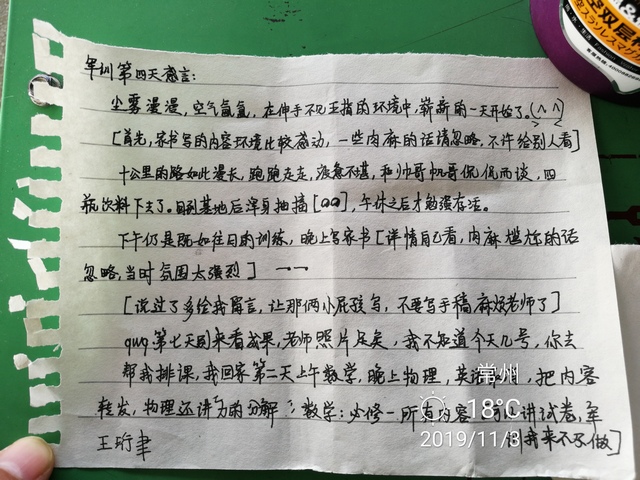 军训第四天感言:
尘雾漫漫,空气氤氲,在伸手不见五指的环境中,崭新的一天开始了。(^ ^)
[首先,家书写的内容环境比较感动,一些肉麻的话请忽略,不许给别人看]
十公里的路如此漫长,跑跑走走,疲惫不堪,和帅哥帆哥侃侃而谈,四
瓶饮料下去了。回到基地后浑身抽搐[QQ],午休之后才勉强存活。
下午仍是既如往日的训练,晚上写家书[详情自己看,肉麻尴尬的话
忽略,当时氛围太强烈] 一一
[说过了多给我留言,让那俩小屁孩写,不要写手稿麻烦老师了]
qwq 第七天回来看成果,老师照片足矣,我不知道今天几号,你去
帮我排课,我回家第二天上午数学,晚上物理,英语 把内容
转发,物理还讲力的分解 数学:必修一所有内容 讲试卷,
我来不及做]
王珩聿
常州
18℃
2019/11/